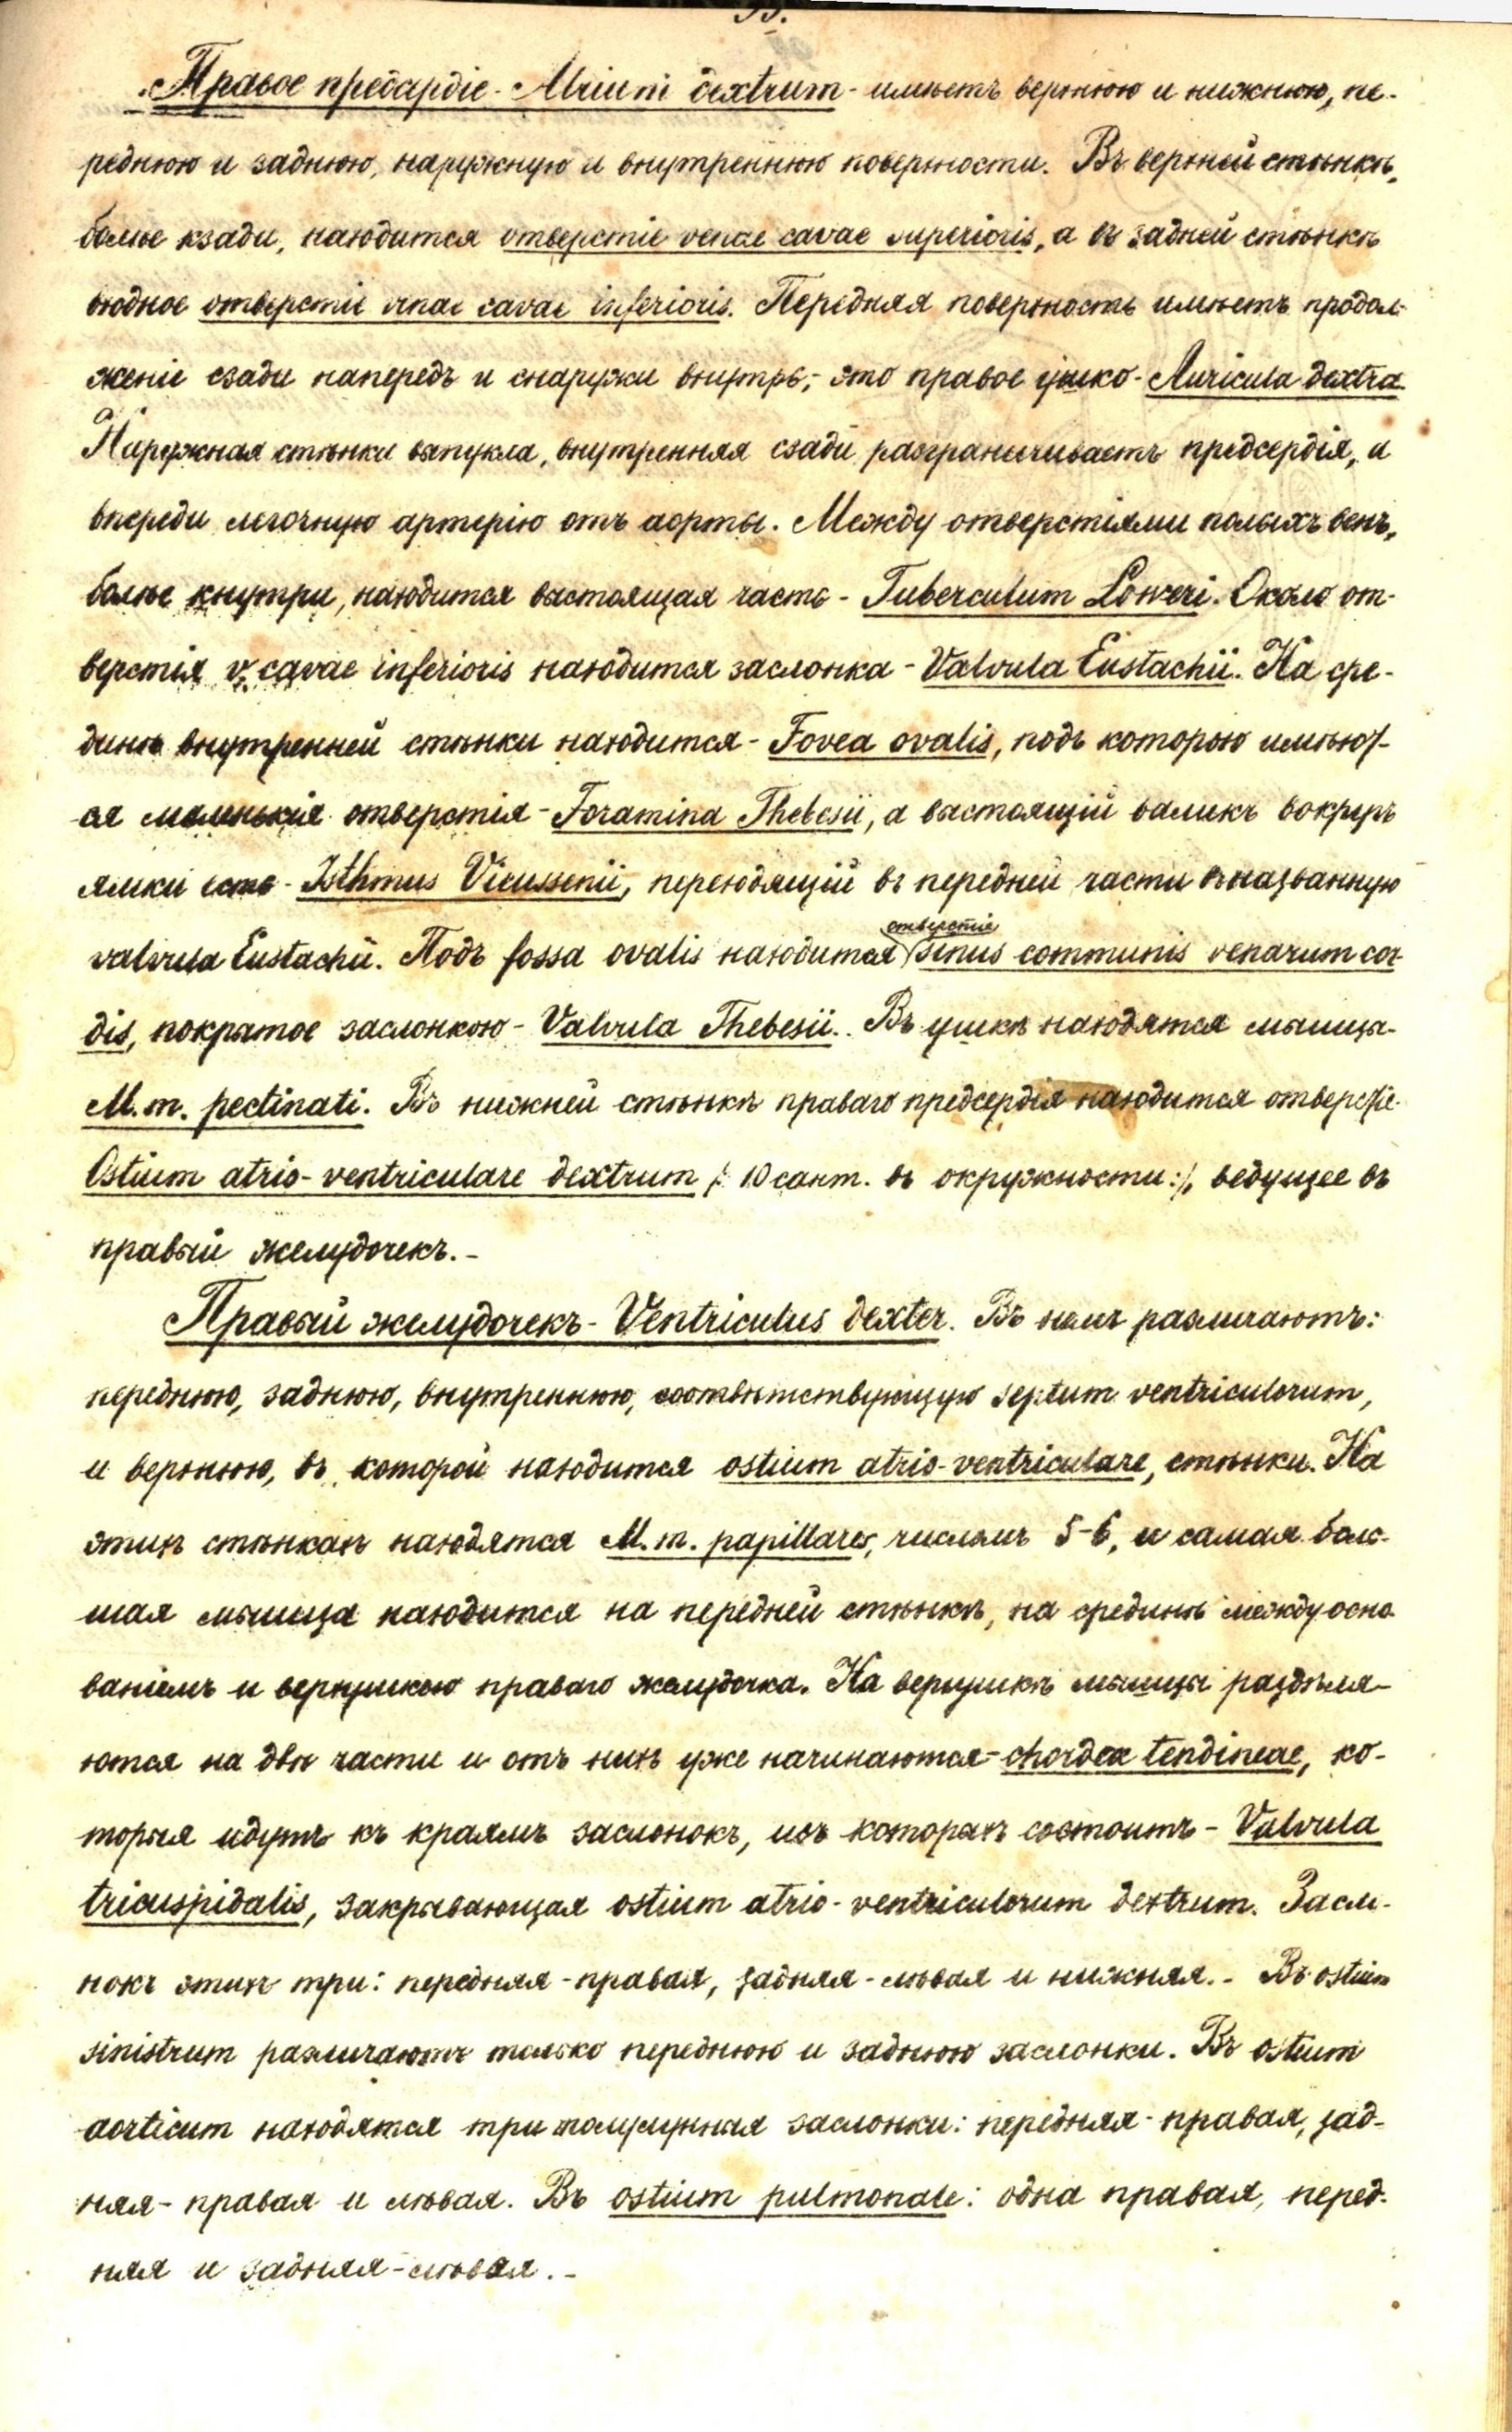 Правое предсердіе - Atrium dextrum - имѣетъ верхнюю и нижнюю, пе-
реднюю и заднюю, наружную и внутреннюю поверхности. Въ верхней стѣнкѣ,
болѣе кзади, находится отверстіе venae cavae superioris, а въ задней стѣнкѣ
входное отверстіе venae cavae inferioris. Передняя поверхность имѣетъ продол-
женіе сзади напередъ и снаружи внутрь,- это правое ушко - Auricula dextra
Наружная стѣнка выпукла, внутренняя сзади разграничиваетъ предсердія, и
впереди легочную артерію отъ аорты. Между отверстіями полыхъ венъ,
болѣе кнутри, находится выстоящая часть - Tuberculum Loweri. Около от-
верстія v. cavae inferioris находится заслонка - Valvula Eustachii. На сре-
динѣ внутренней стѣнки находится - Fovea ovalis, подъ которою имѣют-
ся маленькія отверстія - Foramina Thebesii, а выстоящій валикъ вокругъ
ямки есть - Isthmus Vieussenii, переходящій въ передней части въ названную
valvula Eustachii. Подъ fossa ovalis находится отверстіе sinus communis venarum cor-
dis, покрытое заслонкою - Valvula Thebesii. Въ ушкѣ находятся мышцы-
M. m. pectinati. Въ нижней стѣнкѣ праваго предсердія находится отверстіе-
Ostium atrio-ventriculare dextrum /: 10 сант. въ окружности :/, ведущее въ
правый желудочекъ.-
Правый желудочекъ - Ventriculus dexter. Въ немъ различаютъ:
переднюю, заднюю, внутреннюю, соотвѣтствующую septum ventriculorum,
и верхнюю, въ которой находится ostium atrio-ventriculare, стѣнки. На
этихъ стѣнкахъ находятся M. m. papillares, числомъ 5-6, и самая боль-
шая мышца находится на передней стѣнкѣ, на срединѣ между осно-
ваніемъ и верхушкою праваго желудочка. На верхушкѣ мышцы раздѣля-
ются на двѣ части и отъ нихъ уже начинаются - chordea tendineae, ко-
торыя идутъ къ краямъ заслонокъ, изъ которыхъ состоитъ - Valvula
tricuspidalis, закрывающая ostium atrio-ventriculorum dextrum. Засло-
нокъ этихъ три: передняя-правая, задняя-лѣвая и нижняя.- Въ ostium
sinistrum различаютъ только переднюю и заднюю заслонки. Въ ostium
aorticum находятся три полулунныя заслонки: передняя-правая, зад-
няя-правая и лѣвая. Въ ostium pulmonale: одна правая, перед-
няя и задняя-лѣвая.-